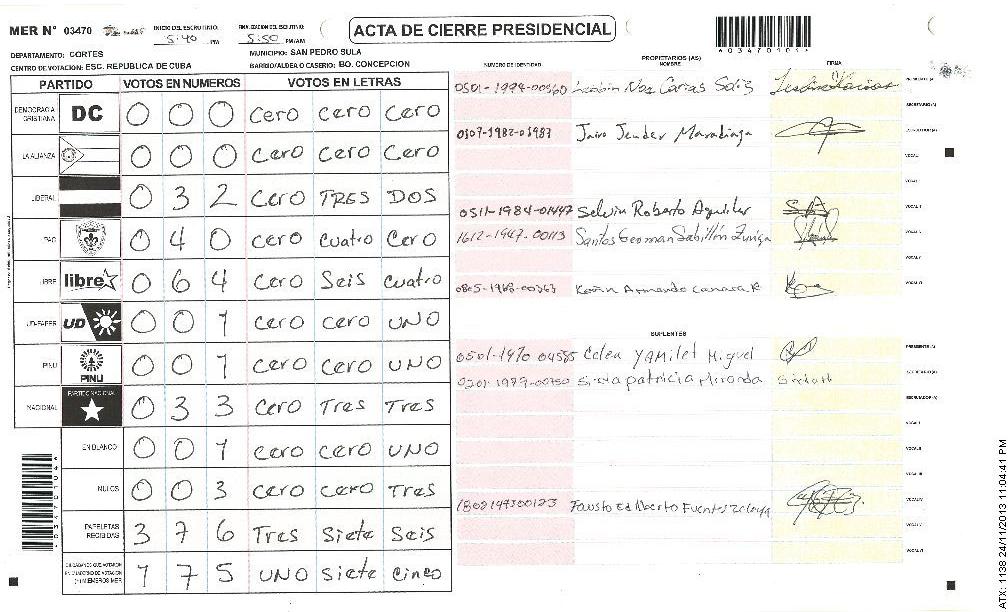 MER N° 03470 INICIO DEL ESCRUTINIO: 5:40 PM FINALIZACION DEL ESCRUTINIO: 5:50 PM/AM ACTA DE CIERRE PRESIDENCIAL
DEPARTAMENTO: CORTES MUNICIPIO: SAN PEDRO SULA
CENTRO DE VOTACION: ESC. REPUBLICA DE CUBA BARRIO/ALDEA O CASERIO: BO. CONCEPCION
PARTIDO VOTOS EN NUMEROS VOTOS EN LETRAS
DEMOCRACIA CRISTIANA DC 0 0 0 Cero Cero Cero
LA ALIANZA 0 0 0 Cero Cero Cero
LIBERAL 0 3 2 Cero TRES DOS
PAC 0 4 0 Cero Cuatro Cero
LIBRE libre 0 6 4 Cero Seis Cuatro
UD-FAPER UD 0 0 1 Cero Cero UNO
PINU PINU 0 0 1 Cero Cero UNO
NACIONAL PARTIDO NACIONAL 0 3 3 Cero Tres Tres
EN BLANCO 0 0 1 Cero Cero UNO
NULOS 0 0 3 Cero Cero Tres
PAPELETAS RECIBIDAS 3 7 6 Tres Siete Seis
CIUDADANOS QUE VOTARON EN CUADERNO DE VOTACION (+) MIEMBROS MER 1 7 5 UNO Siete Cinco
PROPIETARIOS (AS)
NUMERO DE IDENTIDAD NOMBRE FIRMA
PRESIDENTE (A)
SECRETARIO (A)
0507-1982-03987 Jairo Jender Maradiaga ESCRUTADOR (A)
VOCAL I
0511-1984-01447 Selvin Roberto Aguilar
1612-1947-00113 Santos German Sabillón Zuniga
Armando
SUPLENTES
Yamilet Miguel PRESIDENTE (A)
patricia Miranda SECRETARIO (A)
ESCRUTADOR (A)
VOCAL I
VOCAL II
VOCAL III
Fausto Edilberto Fuentes Zelaya VOCAL IV
VOCAL V
VOCAL VI
ATX: 1138 24/11/2013 11:04:41 PM